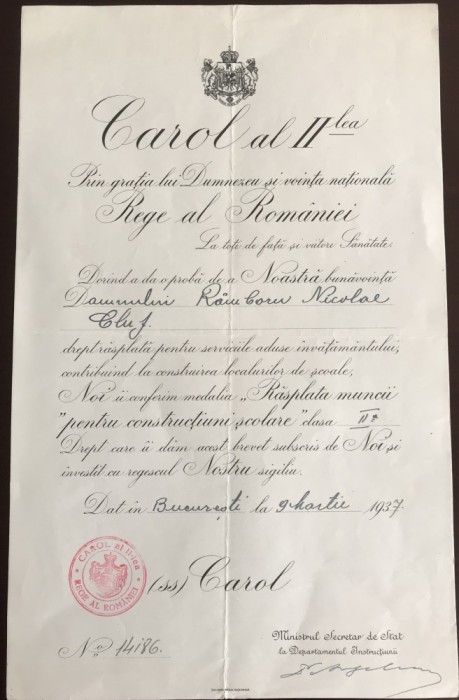 Carol al II lea
Prin grația lui Dumnezeu și voința națională
Rege al României
La toți de față și viitori Sănătate.
Dorind a da o probă de a Noastră bunăvoință
Domnului Nicolae
Cluj.
drept răsplată pentru serviciile aduse învățământului,
contribuind la construirea localurilor de școale,
Noi îi conferim medalia „Răsplata muncii
"pentru construcțiuni școlare" clasa II a
Drept care îi dăm acest brevet subscris de Noi, și
investit cu regescul Nostru sigiliu.
Dat în București la 9 Martie 1937
CAROL al II-lea
REGE AL ROMÂNIEI
(ss) Carol
No 14186.
Ministrul Secretar de Stat
la Departamentul Instrucțiunii